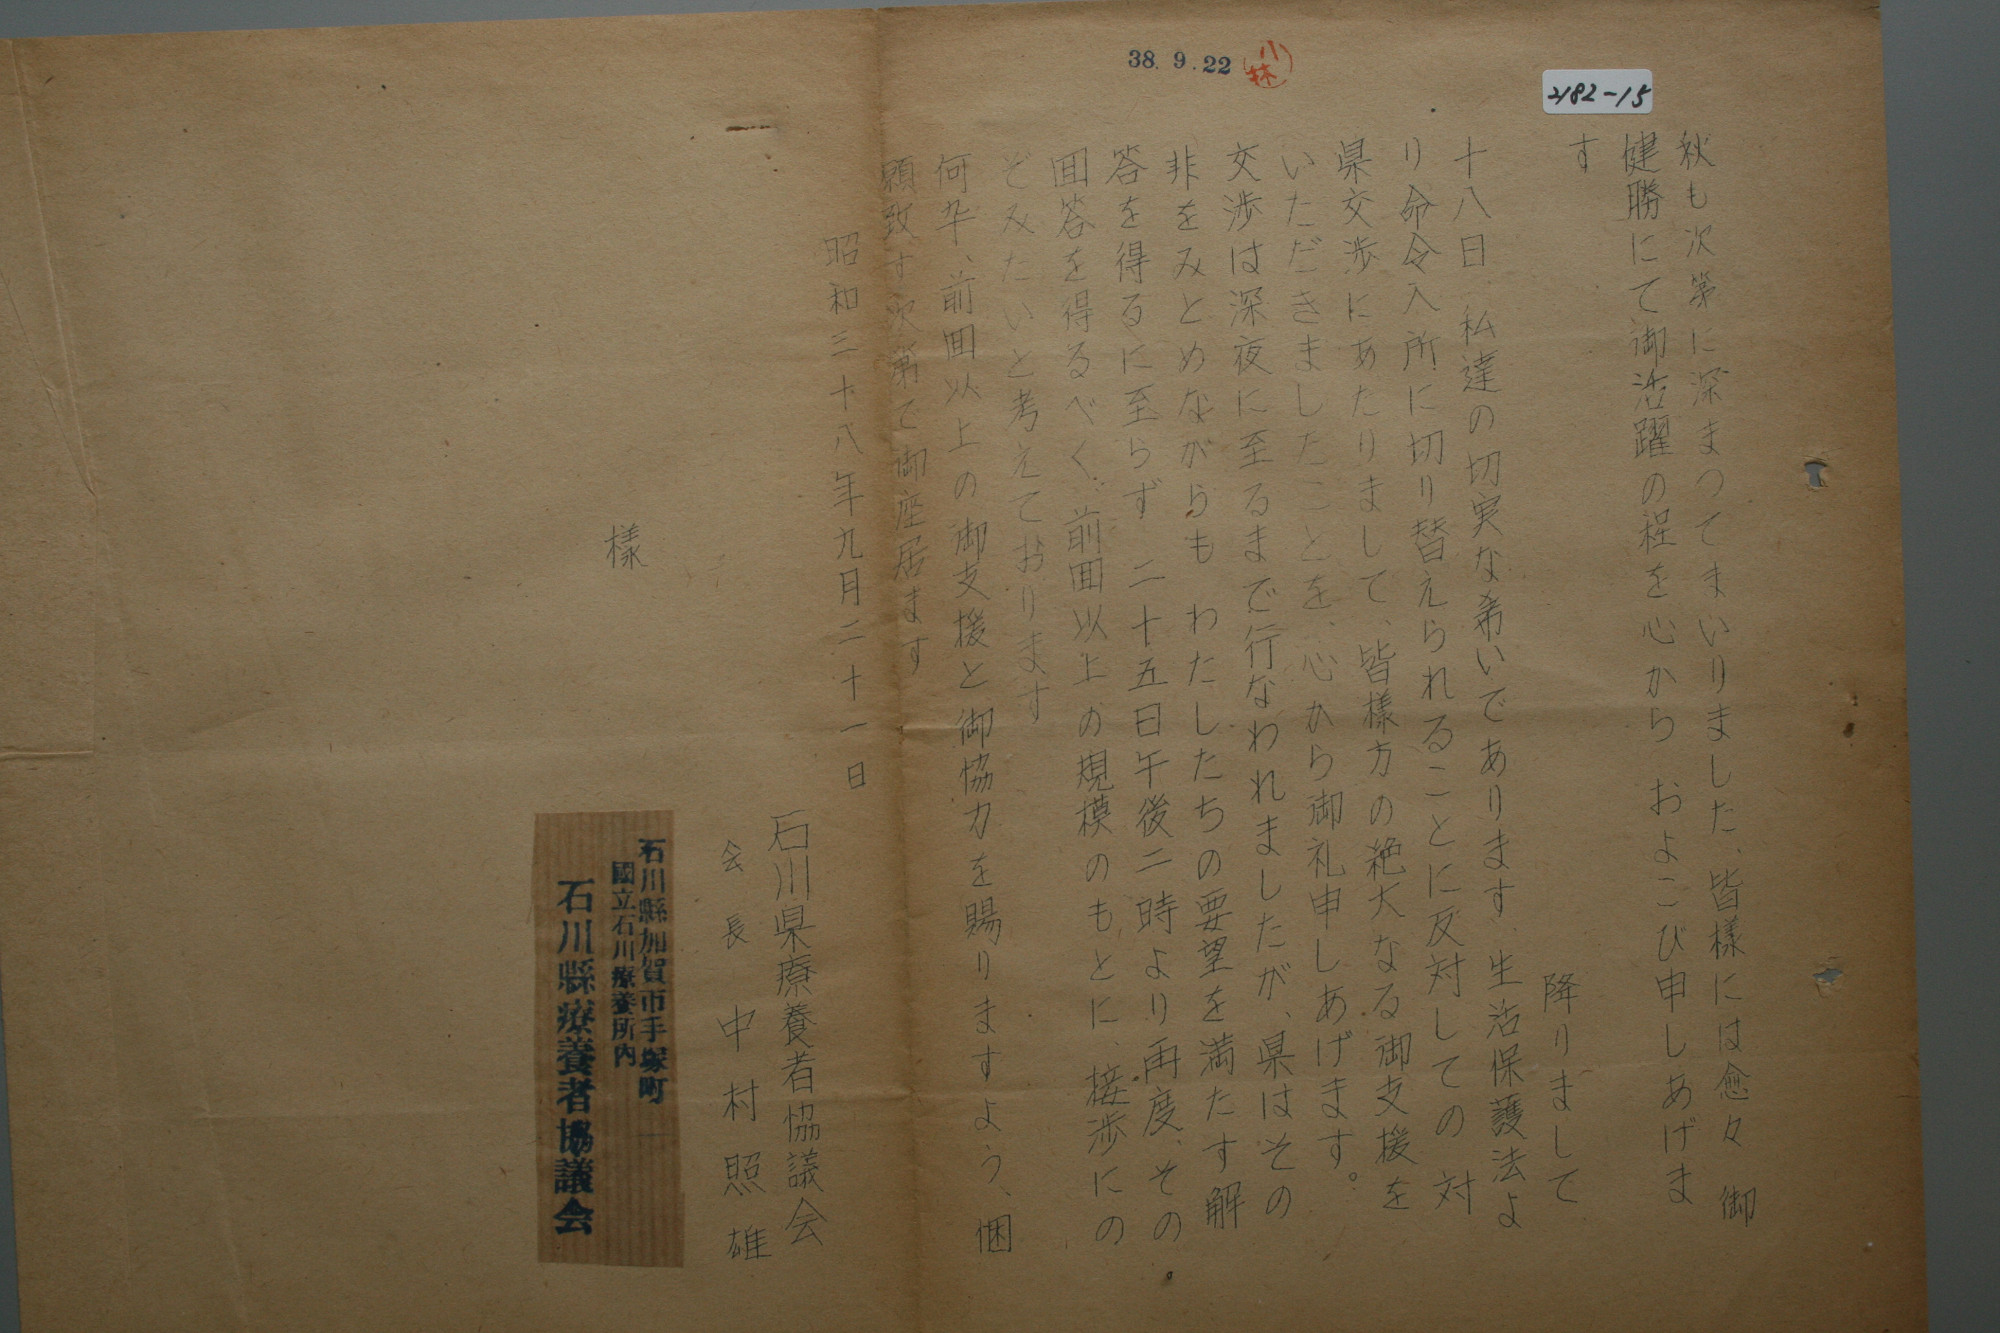 38.9.22
小林
2182-15
秋も次第に深まつてまいりました、皆様には愈々 御
健勝にて御活躍の程を心から およこび申しあげま
す
降りまして
十八日、私達の切実な希いであります 生活保護法よ
り命令入所に切り替えられることに反対しての 対
県交渉にあたりまして、皆様方の絶大なる御支援を
いただきましたことを、心から御礼申しあげます。
交渉は深夜に至るまで行なわれましたが、県はその
非をみとめながらも わたしたちの要望を満たす解
答を得るに至らず 二十五日午後二時より再度、その
回答を得るべく、前回以上の規模のもとに、接渉にの
ぞみたいと考えております
何卒、前回以上の御支援と御協力を賜りますよう、悃
願致す次第で御座居ます
昭和三十八年九月二十一日
石川県療養者協議会
会長 中村照雄
石川縣加賀市手塚町
國立石川療養所内
石川縣療養者協議会
様